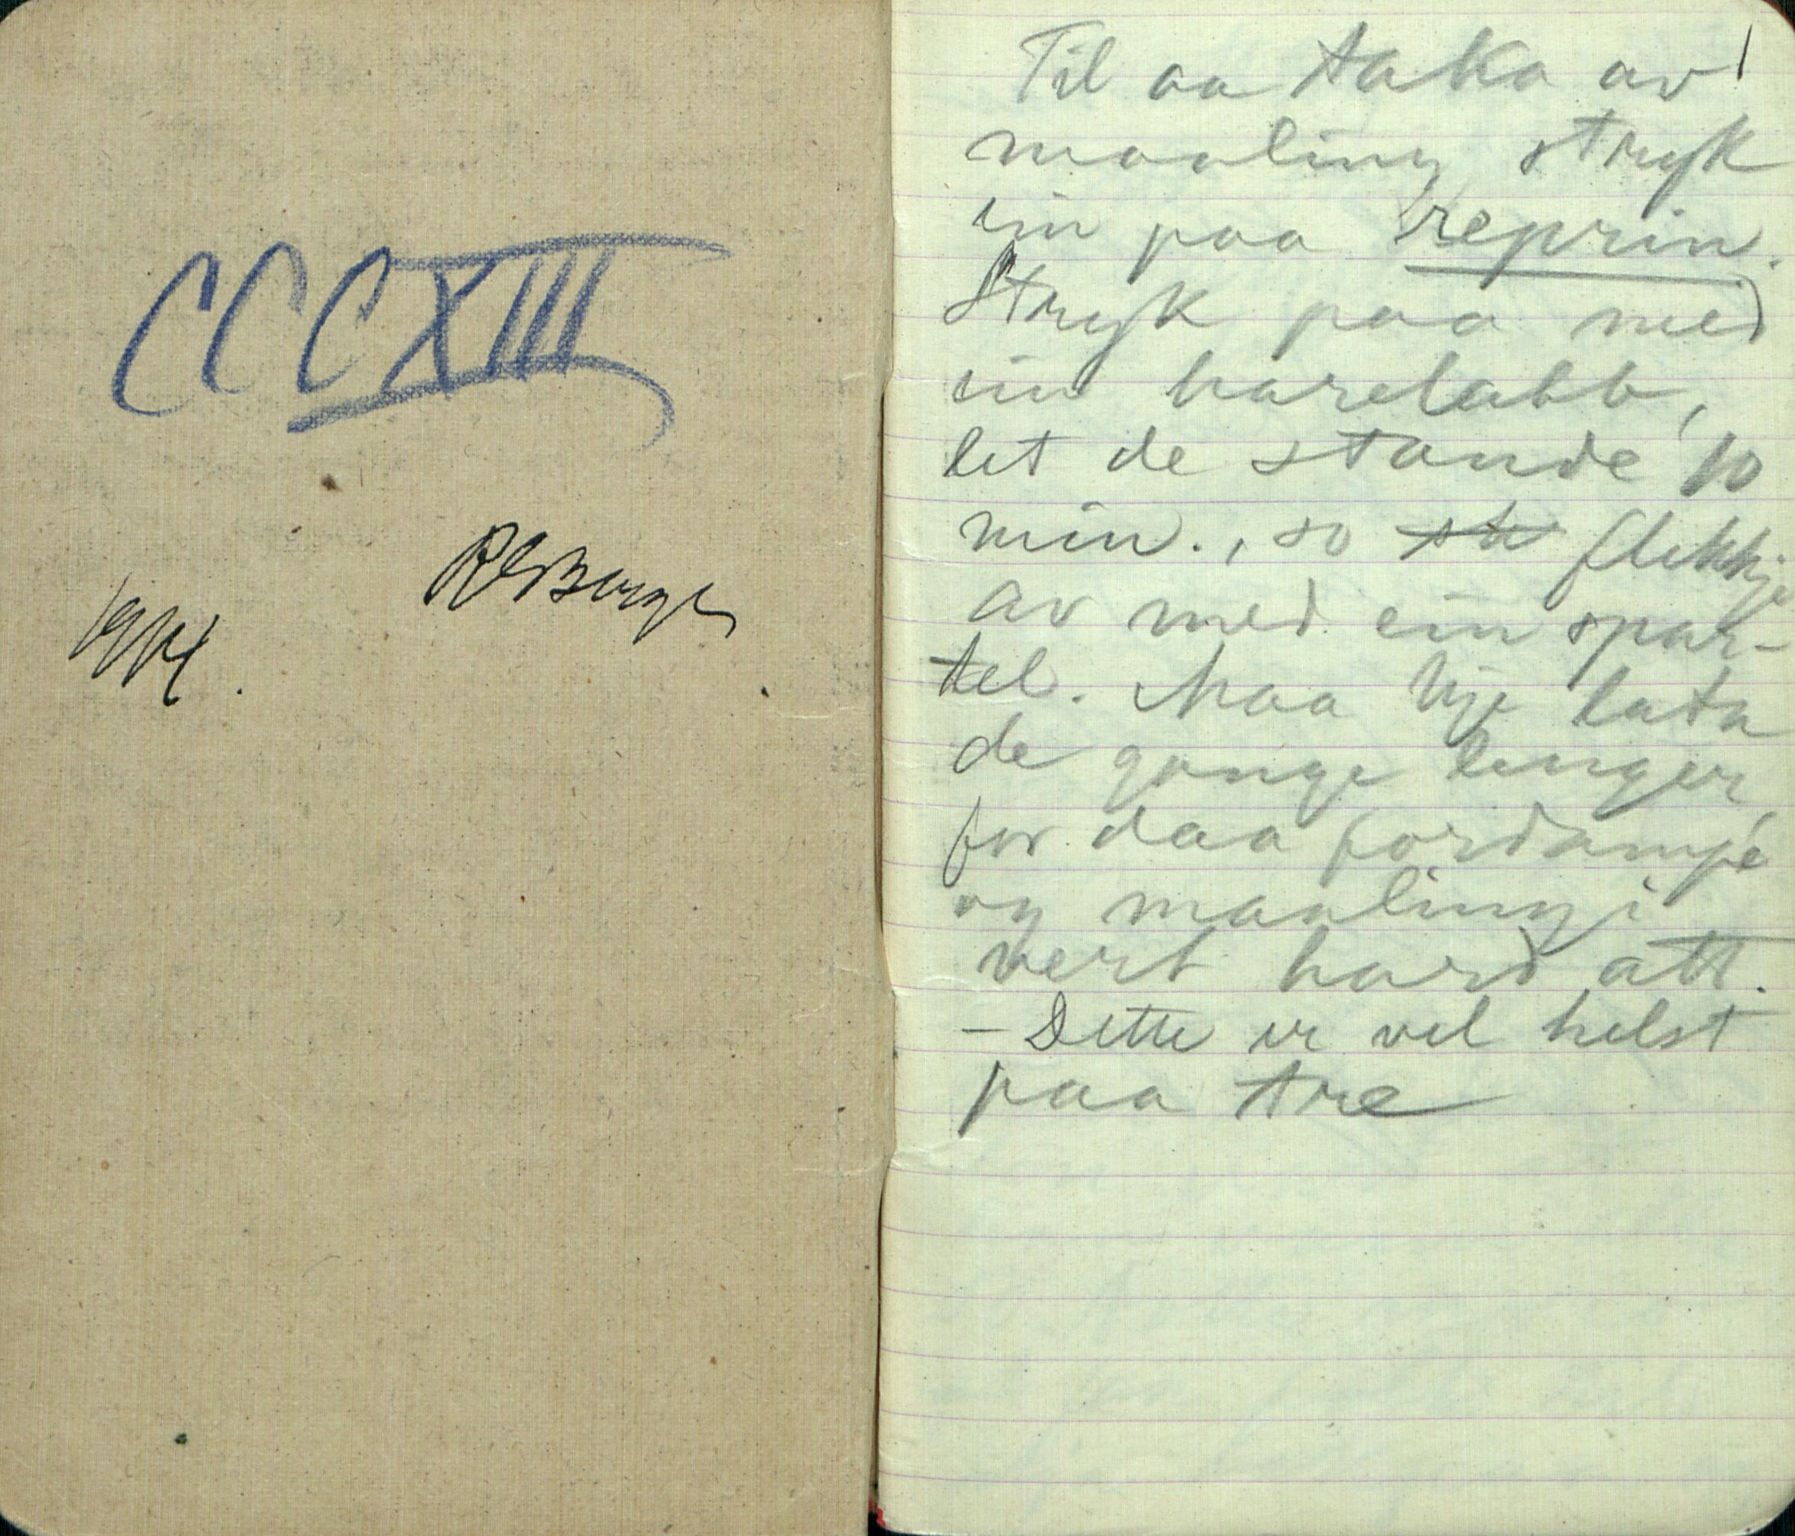 CCCXIII
RBerge
1914.
1
Til aa taka av
maaling stryk
ein paa reprin.
Stryk paa med
ein harelabb,
let de stande 10
min., so st flekkje
av med ein spar-
tel. Maa kje lata
de gange lenger,
for daa fordampe
og maalingi
vert hard att.
– Dette er vel helst
paa tre